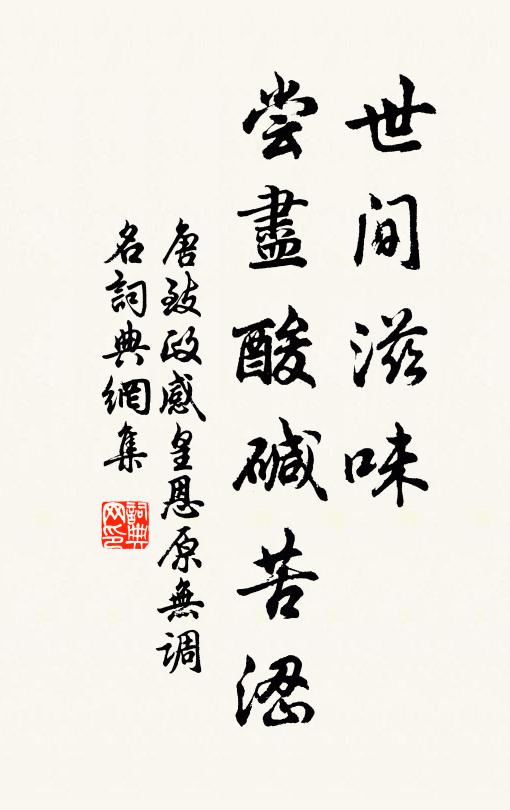 世间滋味
尝盡酸碱苦涩
唐致政感皇恩原無调
名詞典網集
詞典网印